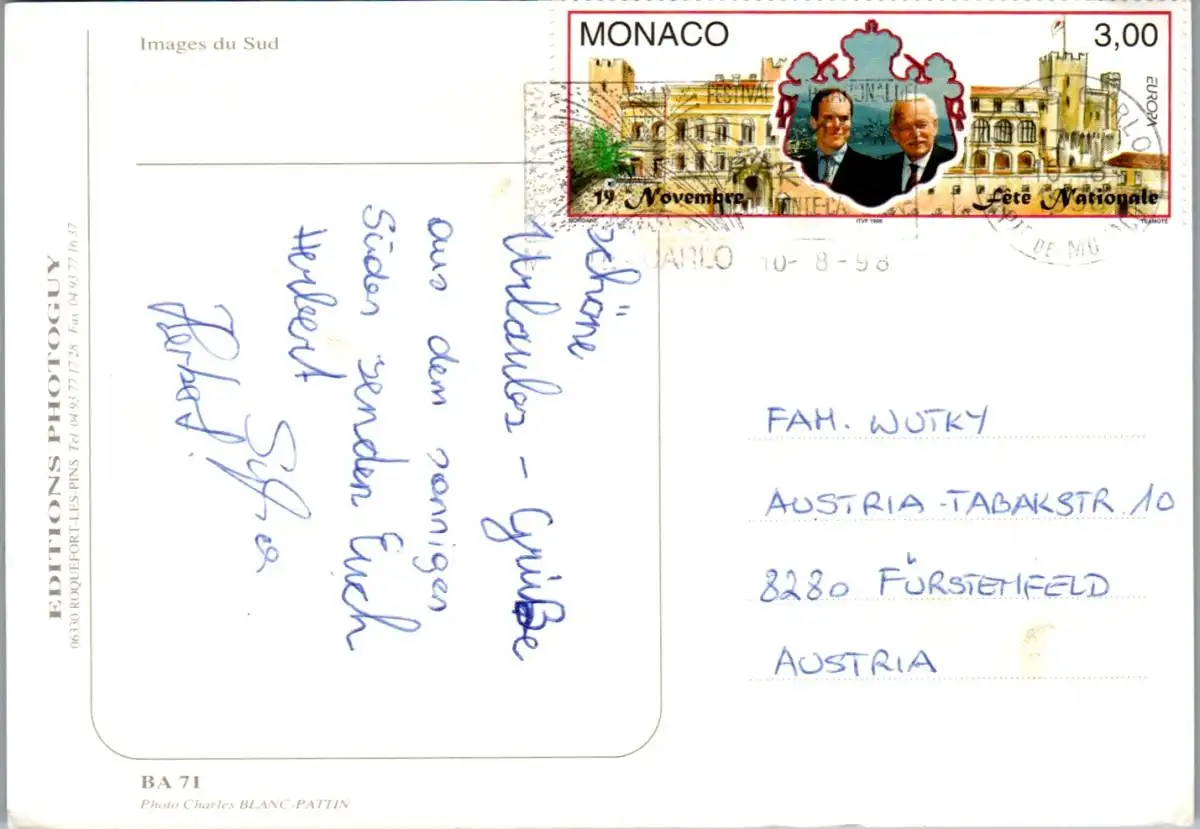 Images du Sud
MONACO 3,00
EUROPA
19 Novembre Fête Nationale
ITVF 1998
FESTIVAL
10-8-98
schöne
Urlaubs-Grüße
aus dem sonnigen
Süden senden Euch
Herbert
FAM. WUTKY
AUSTRIA-TABAKSTR. 10
8280 FÜRSTENFELD
AUSTRIA
EDITIONS PHOTOGUY
06330 ROQUEFORT-LES-PINS Tel 04 93 77 17 28 Fax 04 93 77 16 37
BA 71
Photo Charles BLANC-PATTIN